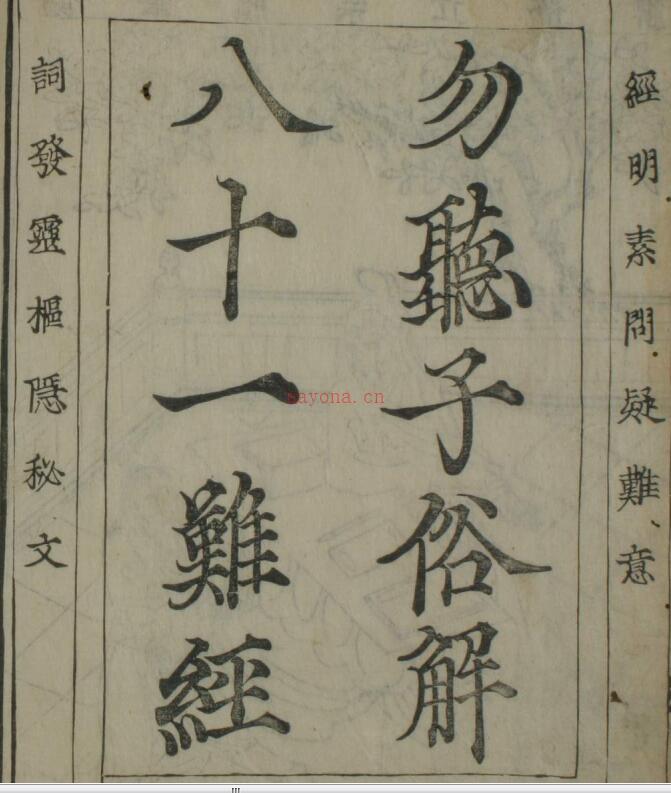 經明素問疑難意
勿聽子俗解
八十一難經
詞發靈樞隱秘文
sayona.cn